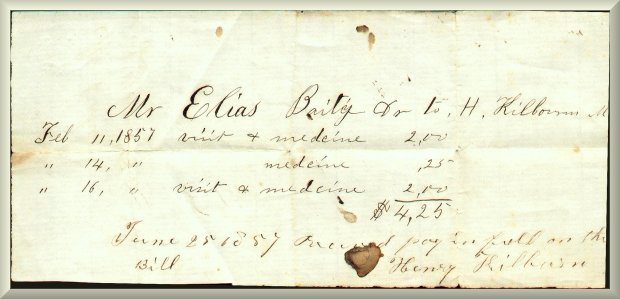 Mr Elias Baity Dr to, H. Kilbourn M
Feb 11, 1857 visit & medcine 2,00
" 14, " medcine ,25
" 16, " visit & medcine 2,00
$ 4,25
June 25 1857 Received pay in full on this
Bill Henry Kilbourn